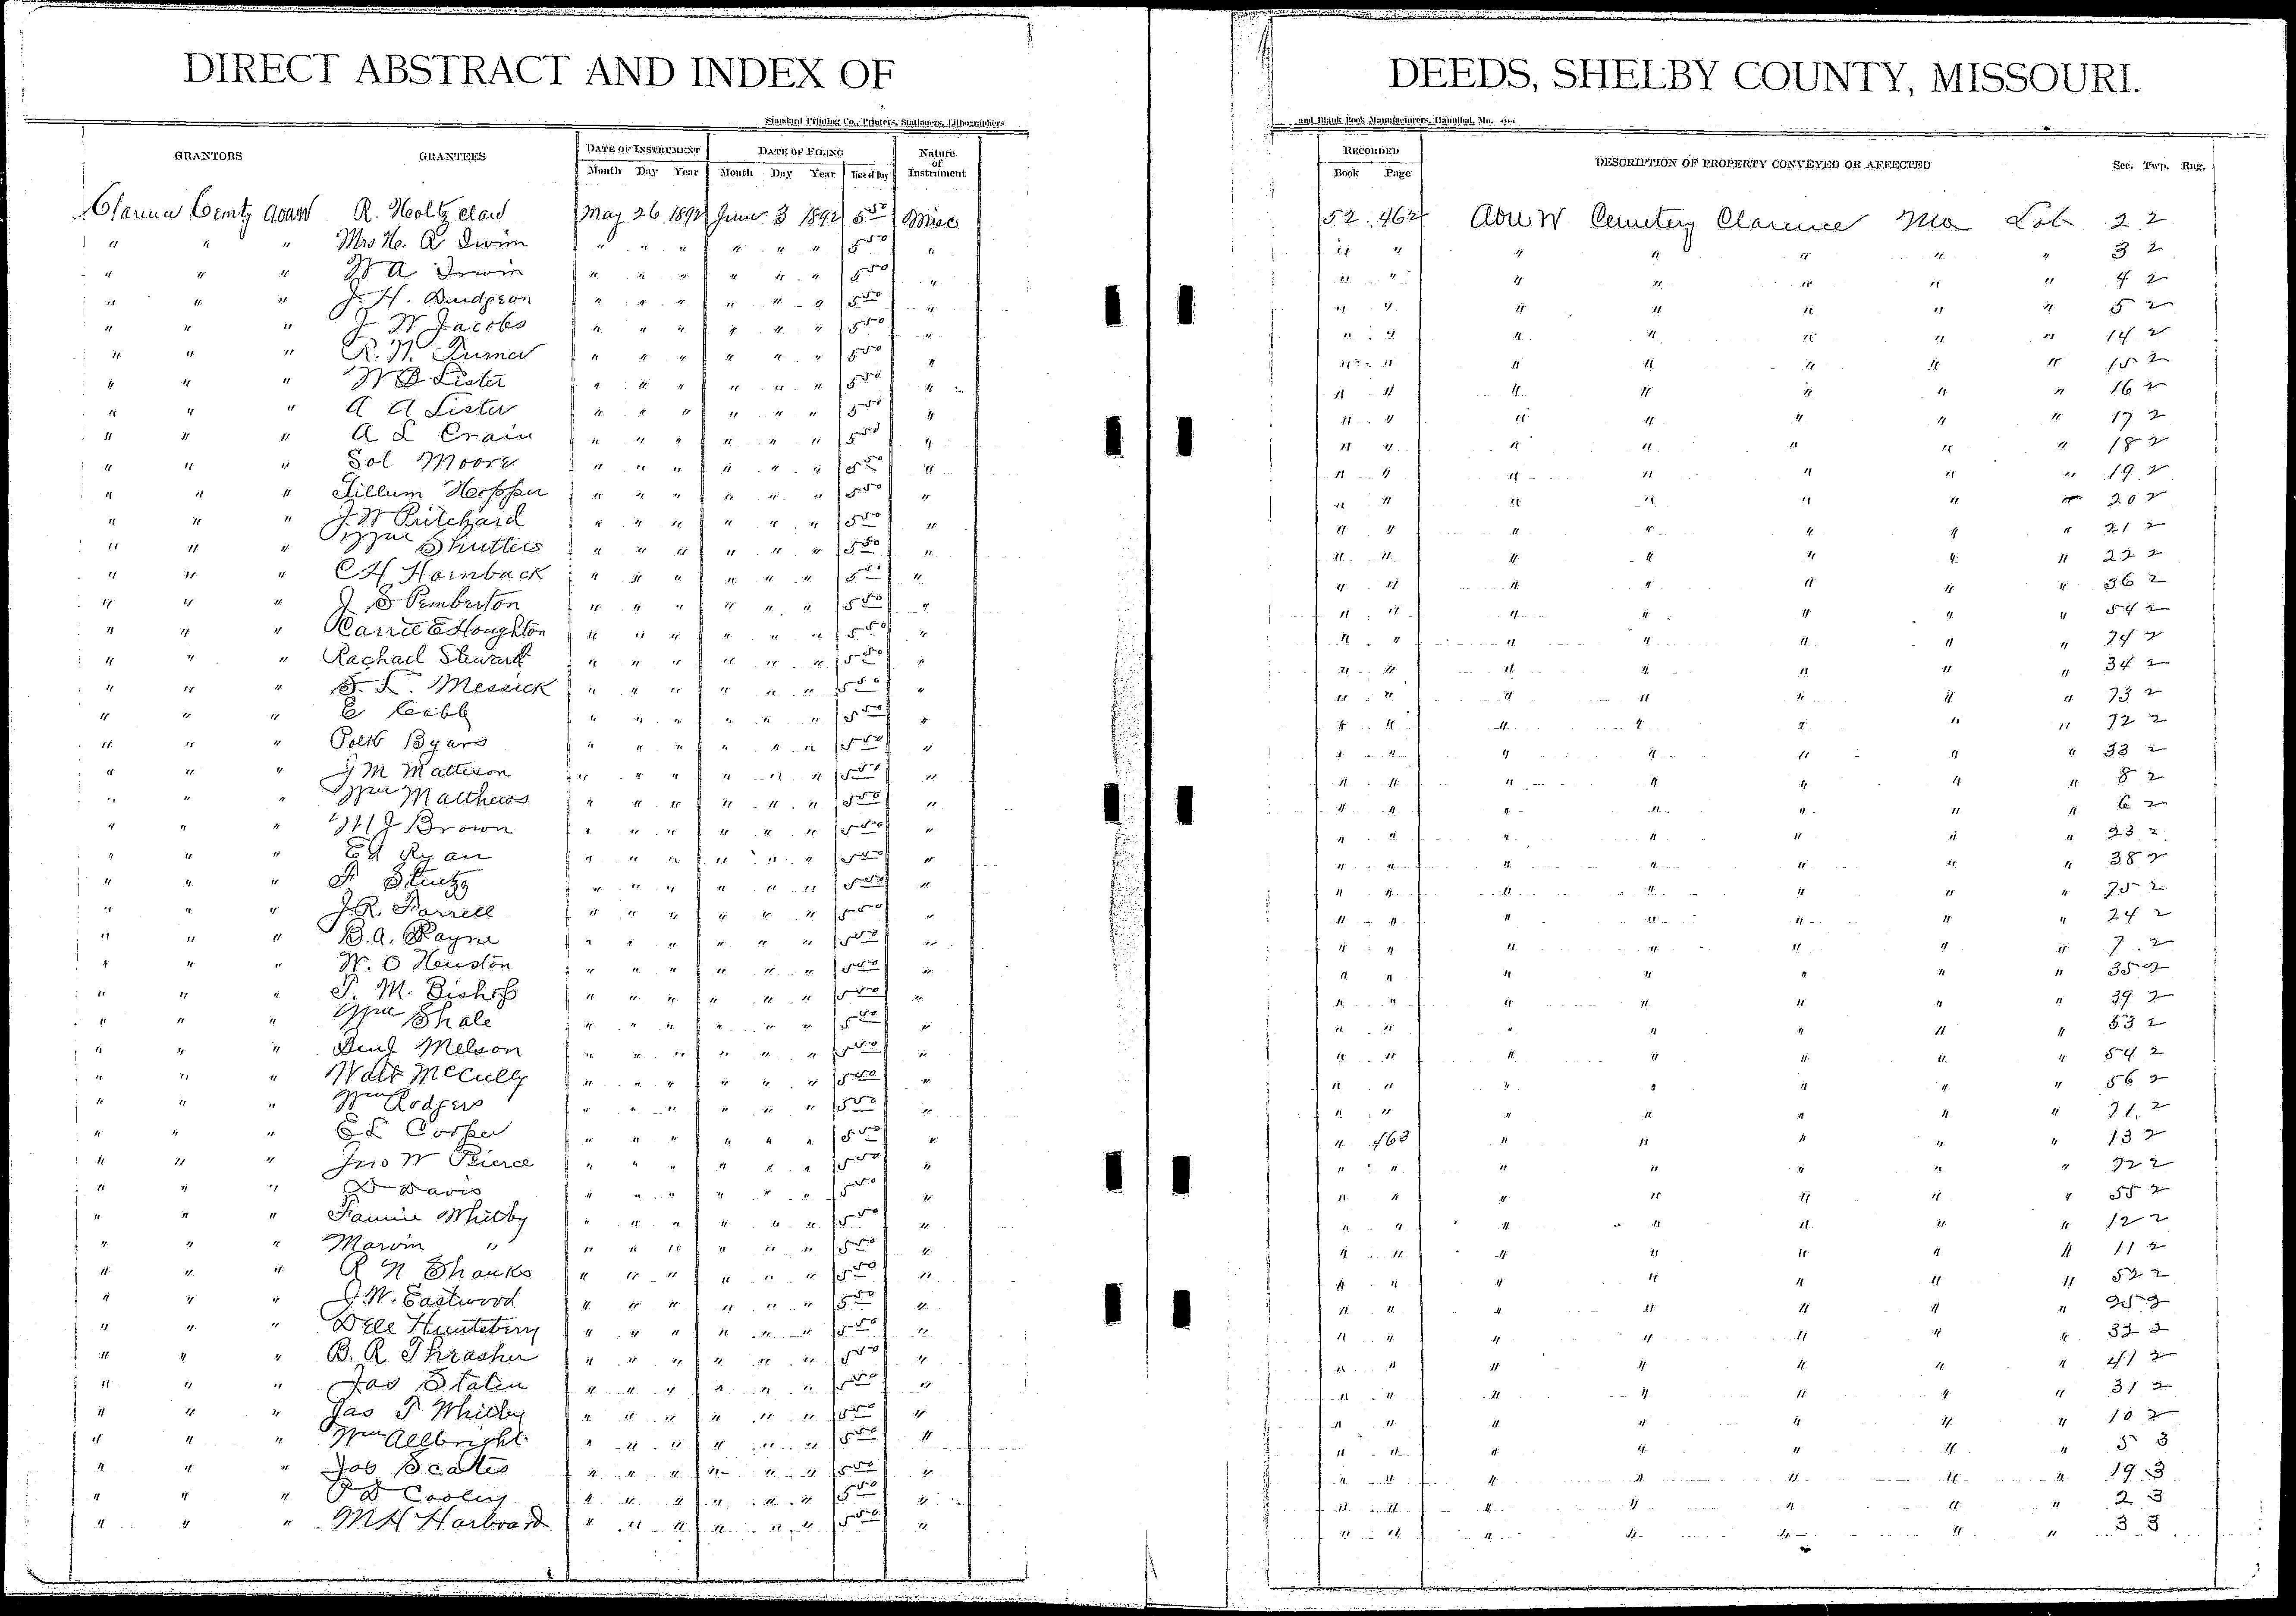 DIRECT ABSTRACT AND INDEX OF DEEDS, SHELBY COUNTY, MISSOURI.
Standard Printing Co., Printers, Stationers, Lithographers and Blank Book Manufacturers, Hannibal, Mo.
GRANTORS GRANTEES DATE OF INSTRUMENT DATE OF FILING Nature of Instrument RECORDED DESCRIPTION OF PROPERTY CONVEYED OR AFFECTED Sec. Twp. Rng.
Month Day Year Month Day Year Time of Day Book Page
R. Holtzclaw May 26 1892 June 3 1892 5 50 Misc 52 462 Cemetery Clarence Mo Lot 2 2
" " " Mrs H. A Irwin " " " " " " 5 50 " " " " " " " " 3 2
" " " W A Irwin " " " " " " 5 50 " " " " " " " " 4 2
" " " J. H. Dudgeon " " " " " " 5 50 " " " " " " " " 5 2
" " " J W Jacobs " " " " " " 5 50 " " " " " " " " 14 2
" " " R. N. Turner " " " " " " 5 50 " " " " " " " " 15 2
" " " W D Lister " " " " " " 5 50 " " " " " " " " 16 2
" " " A A Lister " " " " " " 5 50 " " " " " " " " 17 2
" " " A L Crain " " " " " " 5 50 " " " " " " " " 18 2
" " " Sol Moore " " " " " " 5 50 " " " " " " " " 19 2
" " " Hopper " " " " " " 5 50 " " " " " " " " 20 2
" " " J. W Pritchard " " " " " " 5 50 " " " " " " " " 21 2
" " " Wm Shutters " " " " " " 5 50 " " " " " " " " 22 2
" " " C H Hornback " " " " " " 5 50 " " " " " " " " 36 2
" " " J S Pemberton " " " " " " 5 50 " " " " " " " " 54 2
" " " Carrie E Houghton " " " " " " 5 50 " " " " " " " " 74 2
" " " Rachael Steward " " " " " " 5 50 " " " " " " " " 34 2
" " " S. L. Messick " " " " " " 5 50 " " " " " " " " 73 2
" " " E " " " " " " 5 50 " " " " " " " " 72 2
" " " Polk Byars " " " " " " 5 50 " " " " " " " " 33 2
" " " J M Matteson " " " " " " 5 50 " " " " " " " " 8 2
" " " Wm Matthews " " " " " " 5 50 " " " " " " " " 6 2
" " " M J Brown " " " " " " 5 50 " " " " " " " " 23 2
" " " Ed Ryan " " " " " " 5 50 " " " " " " " " 38 2
" " " F Stutzz " " " " " " 5 50 " " " " " " " " 75 2
" " " J. R. Farrell " " " " " " 5 50 " " " " " " " " 24 2
" " " B. A. Payne " " " " " " 5 50 " " " " " " " " 7 2
" " " W. O Heuston " " " " " " 5 50 " " " " " " " " 35 2
" " " T. M. Bishop " " " " " " 5 50 " " " " " " " " 39 2
" " " Wm Shale " " " " " " 5 50 " " " " " " " " 53 2
" " " Benj Melson " " " " " " 5 50 " " " " " " " " 54 2
" " " Walt McCully " " " " " " 5 50 " " " " " " " " 56 2
" " " Wm Rodgers " " " " " " 5 50 " " " " " " " " 71 2
" " " E L Cooper " " " " " " 5 50 " " 463 " " " " " 13 2
" " " Jno W Pierce " " " " " " 5 50 " " " " " " " " 22 2
" " " D Davis " " " " " " 5 50 " " " " " " " " 55 2
" " " Fannie Whitby " " " " " " 5 50 " " " " " " " " 12 2
" " " Marvin " " " " " " " 5 50 " " " " " " " " 11 2
" " " R N Shanks " " " " " " 5 50 " " " " " " " " 52 2
" " " J. W. Eastwood " " " " " " 5 50 " " " " " " " " 25 2
" " " Dell Huntsberry " " " " " " 5 50 " " " " " " " " 32 2
" " " B. R Thrasher " " " " " " 5 50 " " " " " " " " 41 2
" " " Jas Staten " " " " " " 5 50 " " " " " " " " 31 2
" " " Jas T Whitby " " " " " " 5 50 " " " " " " " " 10 2
" " " Wm Allbright " " " " " " 5 50 " " " " " " " " 5 3
" " " Scates " " " " " " 5 50 " " " " " " " " 19 3
" " " P D Cooley " " " " " " 5 50 " " " " " " " " 2 3
" " " M H Harbourd " " " " " " 5 50 " " " " " " " " 3 3